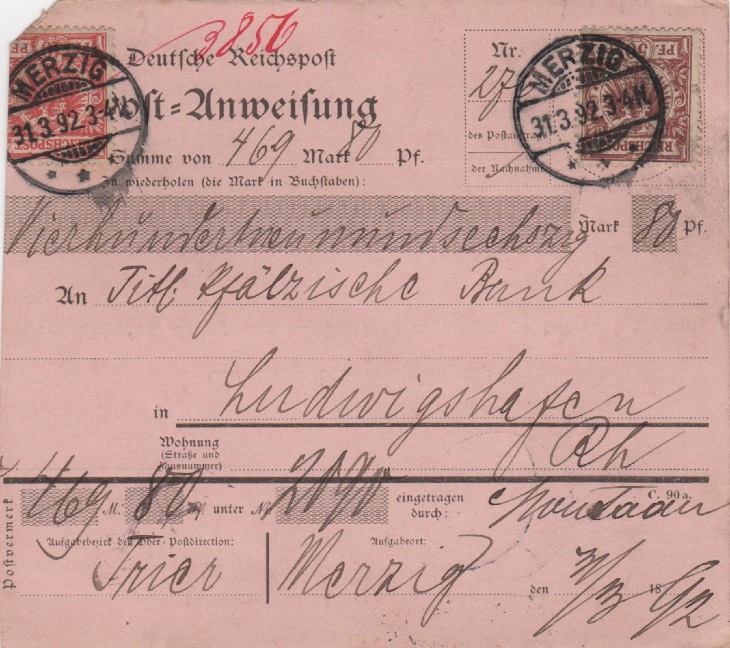 3856
Deutsche Reichspost
Post-Anweisung
MERZIG
31.3.92.3-4N.
PF.
REICHSPOST
Nr.
27
des Postauftrags
der Nachnahme
MERZIG
31.3.92.3-4N.
PF. 50
REICHSPOST
Summe von 469 Mark 80 Pf.
Zu wiederholen (die Mark in Buchstaben):
Vierhundertneunundsechszig Mark 80 Pf.
An Titl. Pfälzische Bank
in Ludwigshafen
Wohnung
(Straße und
Hausnummer)
Rh
Postvermerk
469 M. 80 Pf. unter Nr. 2090 eingetragen
durch:
C. 90a.
Aufgabebezirk der Ober-Postdirection: Aufgabeort:
Trier Merzig den 31/3 1892